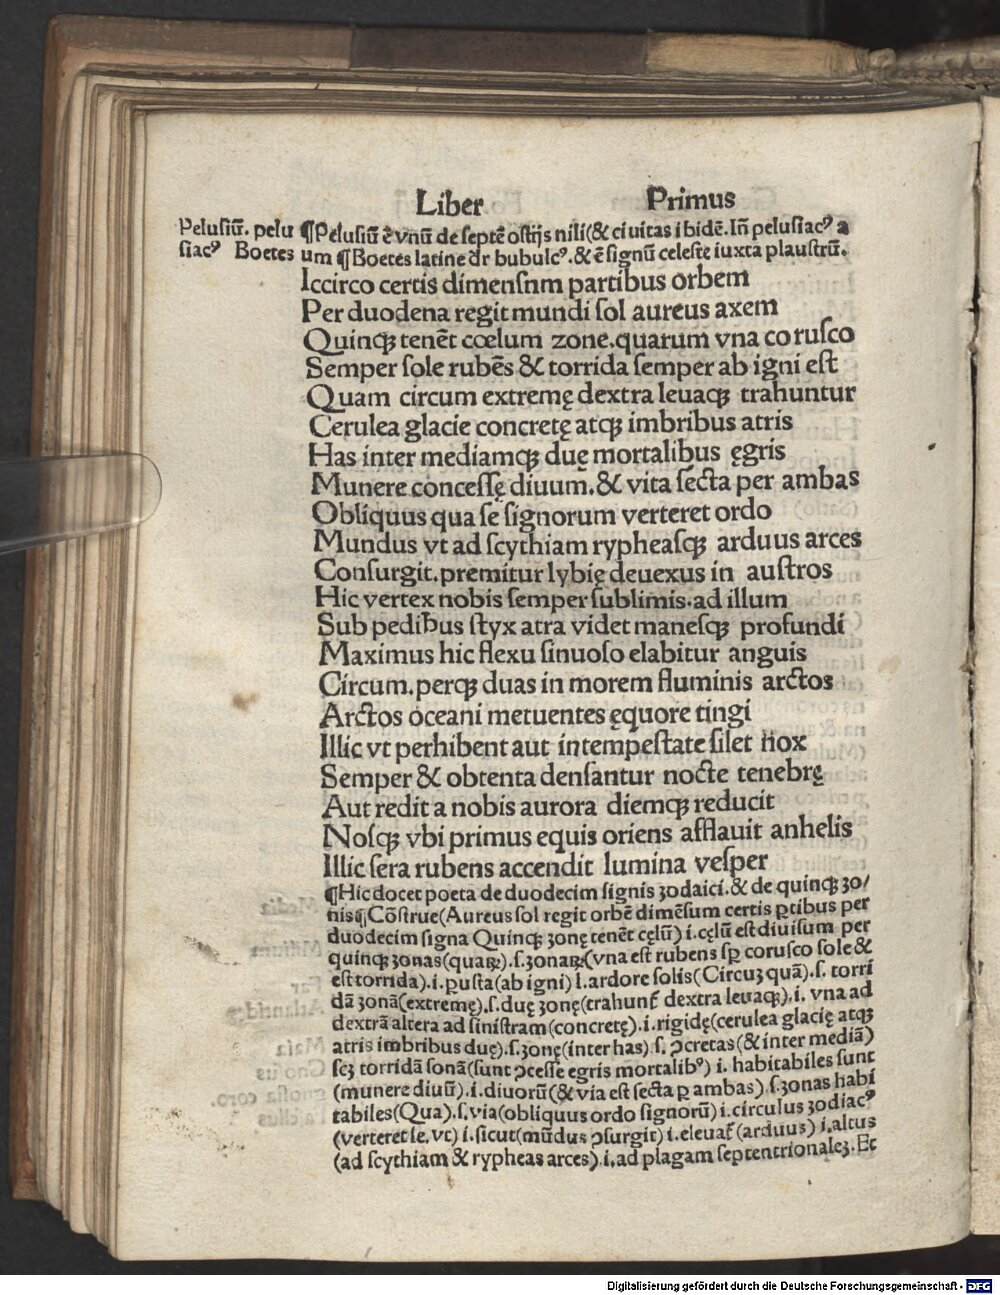 Liber Primus
Pelusiū. pelu ¶Pelusiū ē vnū de septē ostijs nili(& ciuitas ibidē. Iñ pelusiacꝰ a
siacꝰ Boetes um ¶Boetes latine dr̄ bubulcꝰ. & ē signū celeste iuxta plaustrū.
Iccirco certis dimensnm partibus orbem
Per duodena regit mundi sol aureus axem
Quinqꝫ tenēt cœlum zone.quarum vna corusco
Semper sole rubēs & torrida semper ab igni est
Quam circum extremę dextra leuaqꝫ trahuntur
Cerulea glacie concretę atqꝫ imbribus atris
Has inter mediamqꝫ duę mortalibus ęgris
Munere concessę diuum.& vita secta per ambas
Obliquus qua se signorum verteret ordo
Mundus vt ad scythiam rypheasqꝫ arduus arces
Consurgit.premitur lybię deuexus in austros
Hic vertex nobis semper sublimis.ad illum
Sub pedibus styx atra videt manesqꝫ profundi
Maximus hic flexu sinuoso elabitur anguis
Circum.perqꝫ duas in morem fluminis arctos
Arctos oceani metuentes ęquore tingi
Illic vt perhibent aut intempestate silet nox
Semper & obtenta densantur nocte tenebrę
Aut redit a nobis aurora diemqꝫ reducit
Nosqꝫ vbi primus equis oriens afflauit anhelis
Illic sera rubens accendit lumina vesper
¶Hic docet poeta de duodecim signis ʒodaici.& de quinqꝫ ʒo/
nis¶Cōstrue(Aureus sol regit orbē dimēsum certis ꝑtibus per
duodecim signa Quinqꝫ ʒonę tenēt cęlū) i.cęlū est diuisum per
quinqꝫ ʒonas(quaꝝ).s.ʒonaꝝ(vna est rubens sꝑ corusco sole &
est torrida).i.ꝑusta(ab igni) i.ardore solis(Circuʒ quā).s. torri
dā ʒonā(extremę).s.duę ʒonę(trahunt̄ dextra leuaqꝫ).i. vna ad
dextrā altera ad sinistram(concretę).i.rigidę(cerulea glacię atqꝫ
atris imbribus duę).s.ʒonę(inter has).s. ↄcretas(& inter mediā)
scʒ torridā sonā(sunt ↄcesse egris mortalibꝰ) i. habitabiles sunt
(munere diuū).i.diuorū(& via est secta ꝑ ambas).s.ʒonas habi
tabiles(Qua).s.via(obliquus ordo signorū) i.circulus ʒodiacꝰ
(verteret se. vt) i.sicut(mūdus ↄsurgit) i.eleuat̄ (arduus) i.altus
(ad scythiam & rypheas arces).i.ad plagam septentrionaleʒ.Et
Digitalisierung gefördert durch die Deutsche Forschungsgemeinschaft - DFG